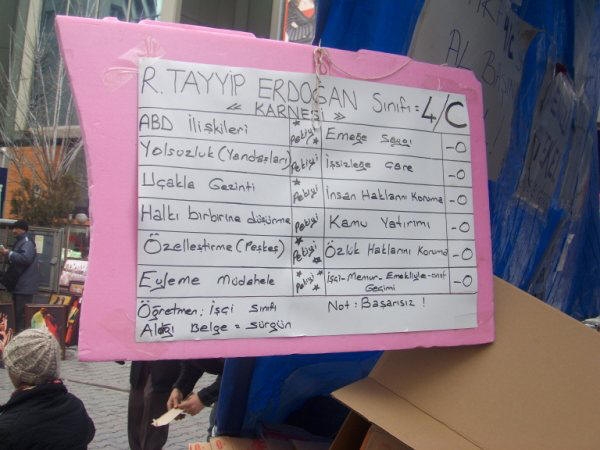 R. TAYYİP ERDOĞAN Sınıfı = 4/C
« KARNESİ »
ABD İlişkileri Pekiyi Emeğe Saygı -0
Yolsuzluk (Yandaşları) Pekiyi İşsizliğe Çare -0
Uçakla Gezinti Pekiyi İnsan Haklarını Koruma -0
Halkı birbirine düşürme Pekiyi Kamu Yatırımı -0
Özelleştirme (Peşkeş) Pekiyi Özlük Haklarını Koruma -0
Eyleme Müdahele Pekiyi İşçi-Memur-Emekliyle-esnaf Geçimi -0
Öğretmen: İşçi Sınıfı Not: Başarısız !
Aldığı Belge = Sürgün